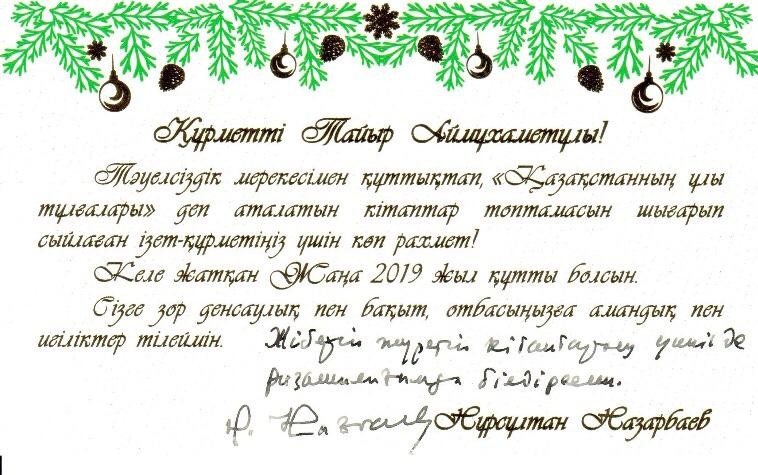 Құрметті Тайыр Аймұхаметұлы!
Тәуелсіздік мерекесімен құттықтап, «Қазақстанның ұлы
тұлғалары» деп аталатын кітаптар топтамасын шығарып
сыйлаған ізет-құрметіңіз үшін көп рахмет!
Келе жатқан Жаңа 2019 жыл құтты болсын.
Сізге зор денсаулық пен бақыт, отбасыңызға амандық пен
игіліктер тілеймін. Жіберіп тұратын кітаптарың үшін де
білдіремін.
Н. Назарбаев Нұрсұлтан Назарбаев